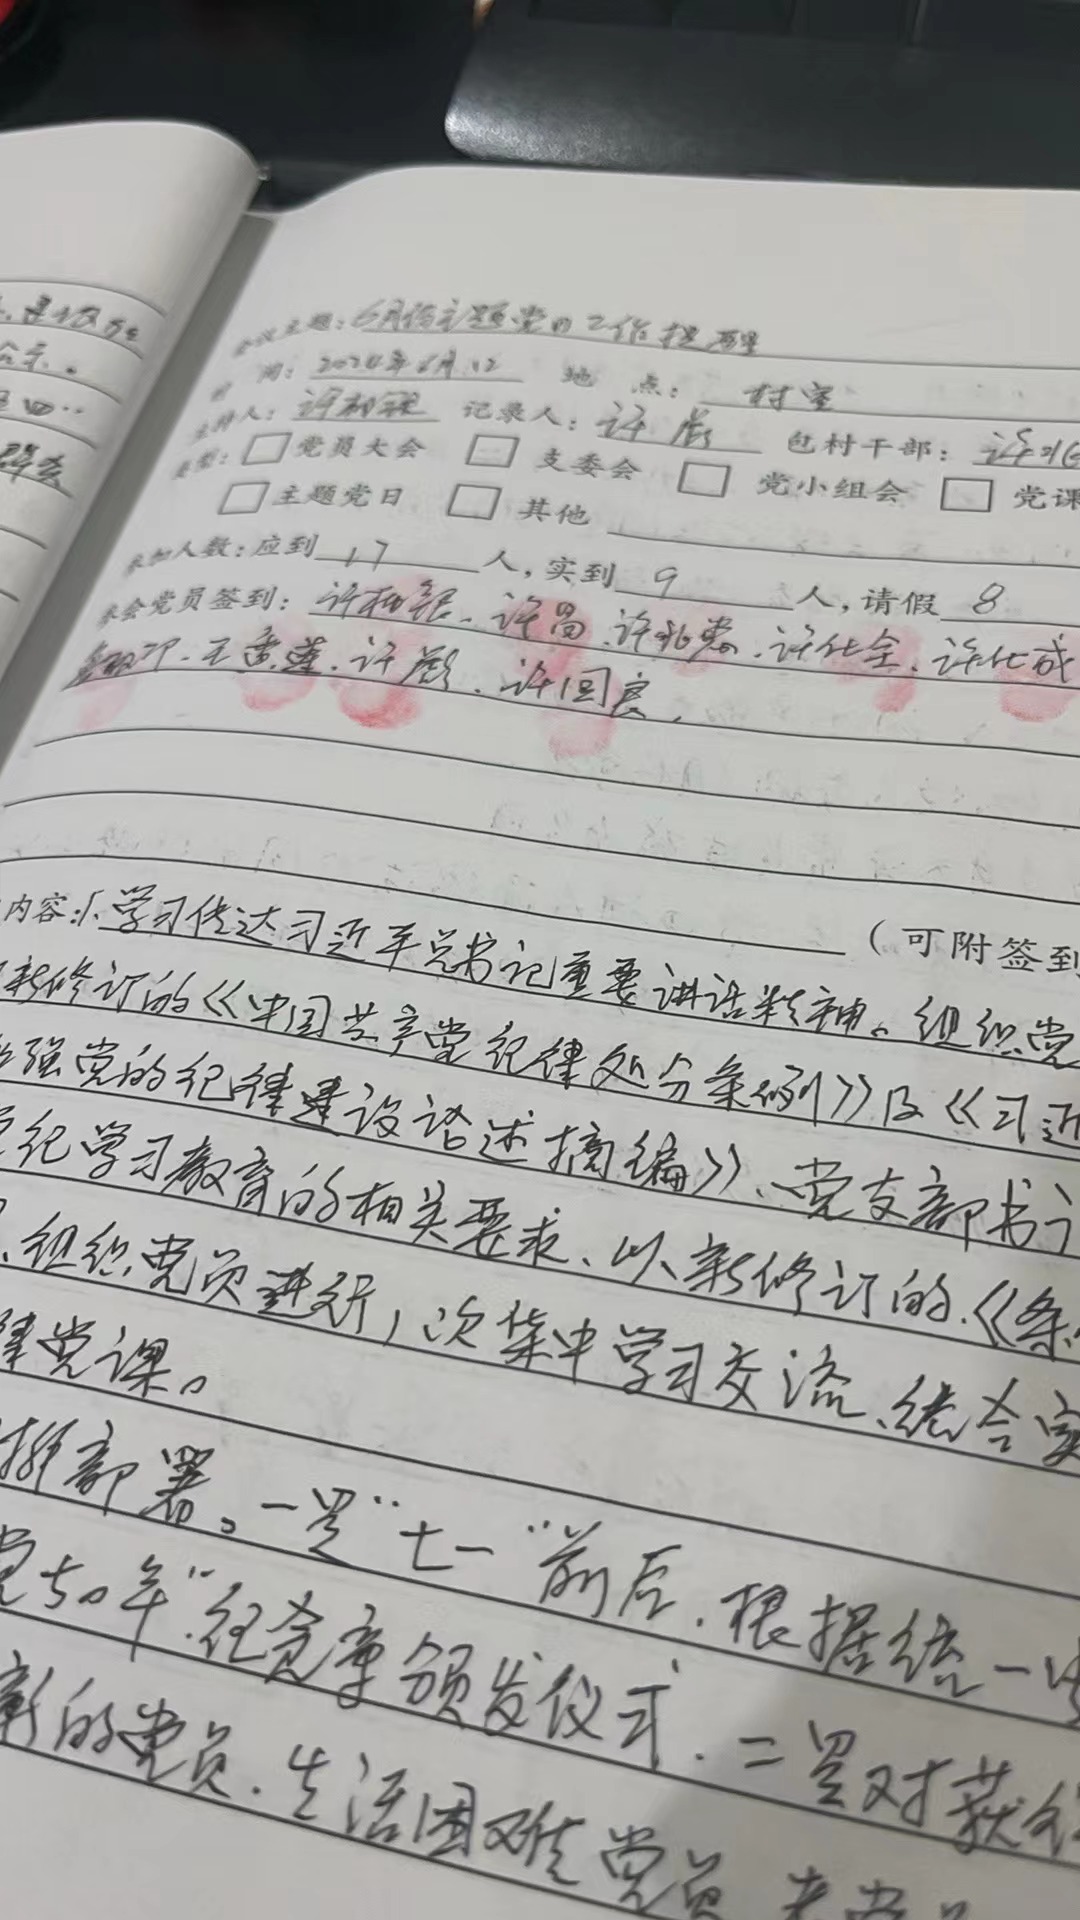 是
公示。
会议主题：6月份主题党日工作提醒
时 间：2024年6月12 地 点： 村室
主持人： 记录人：许 包村干部：许
类型：□党员大会 □支委会 □党小组会 □党课
□主题党日 □其他
参加人数：应到17人，实到9人，请假8
参会党员签到：许 、许昌、许 、许化全、许化成
王香莲、许 、许国良、
（可附签到
内容：1、学习传达习近平总书记重要讲话精神。组织党
新修订的《中国共产党纪律处分条例》及《习近
强党的纪律建设论述摘编》、党支部书记
纪学习教育的相关要求、以新修订的《条
、组织党员进行1次集中学习交流、结合实
党课。
排部署。一是“七一”前后，根据统一
党50年”纪念章颁发仪式，二是对获得
的党员、生活困难党员、老党员